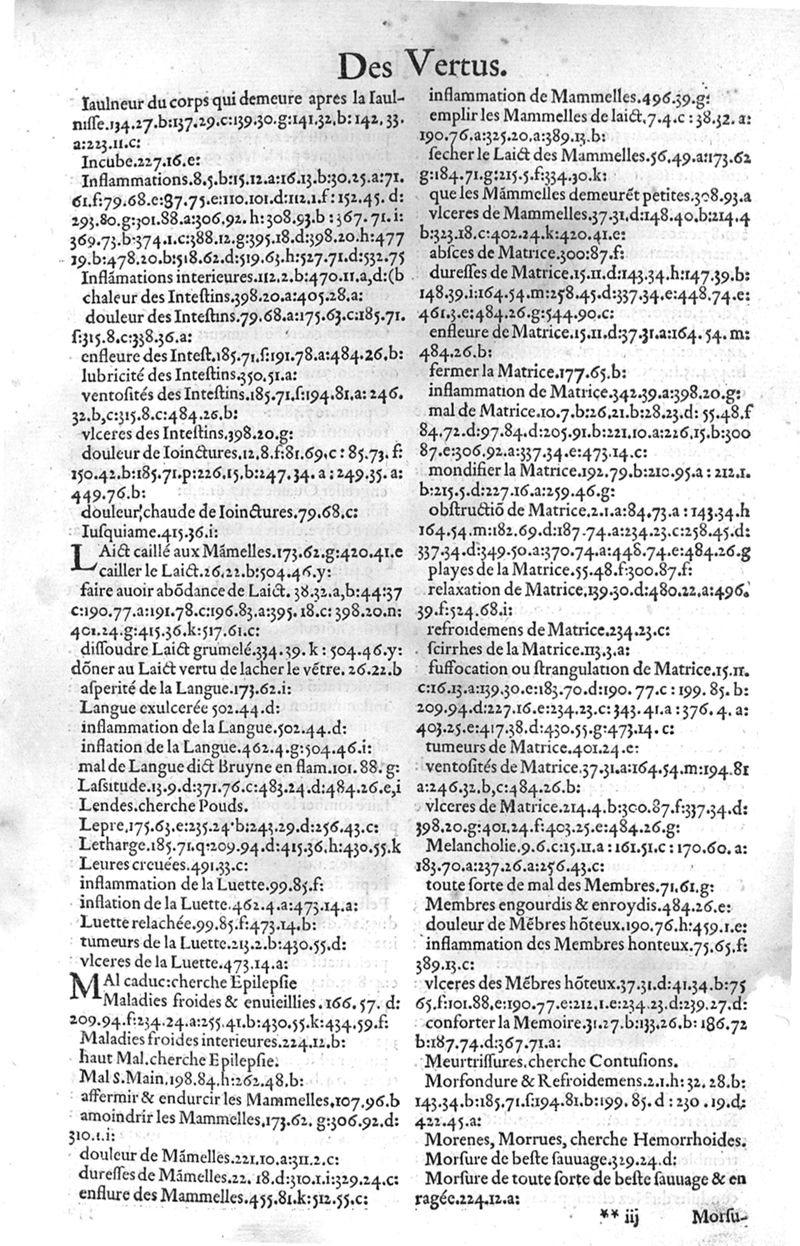 Des Vertus.
Iaulneur du corps qui demeure apres la Iaul-
nisse.134.27.b:137.29.c:139.30.g:141.32.b:142.33.
a:223.11.c:
Incube.227.16.e:
Inflammations.8.5.b:15.12.a:16.13.b:30.25.a:71.
61.f:79.68.e:87.75.e:110.101.d:112.1.f:152.45.d:
293.80.g:301.88.a:306.92.h:308.93.b:367.71.i:
369.73.b:374.1.c:388.12.g:395.18.d:398.20.h:477
19.b:478.20.b:518.62.d:519.63.h:527.71.d:532.75
Inflãmations interieures.112.2.b:470.11.a,d:(b
chaleur des Intestins.398.20.a:405.28.a:
douleur des Intestins.79.68.a:175.63.c:185.71.
f:315.8.c:338.36.a:
enfleure des Intest.185.71.f:191.78.a:484.26.b:
lubricité des Intestins.350.51.a:
ventosités des Intestins.185.71.f:194.81.a:246.
32.b,c:315.8.c:484.26.b:
vlceres des Intestins.398.20.g:
douleur de Ioinctures.12.8.f:81.69.c:85.73.f:
150.42.b:185.71.p:226.15.b:247.34.a;249.35.a:
449.76.b:
douleur chaude de Ioinctures.79.68.c:
Iusquiame.415.36.i:
LAict caillé aux Mãmelles.173.62.g:420.41.e
cailler le Laict.26.22.b:504.46.y:
faire auoir abõdance de Laict.38.32.a,b:44:37
c:190.77.a:191.78.c:196.83.a:395.18.c:398.20.n:
401.24.g:415.36.k:517.61.c:
dissoudre Laict grumelé.334.39.k:504.46.y:
dõner au Laict vertu de lacher le vẽtre.26.22.b
asperité de la Langue.173.62.i:
Langue exulcerée 502.44.d:
inflammation de la Langue.502.44.d:
inflation de la Langue.462.4.g:504.46.i:
mal de Langue dict Bruyne en flam.101.88.g:
Lassitude.13.9.d:371.76.c:483.24.d:484.26.e,i
Lendes.cherche Pouds.
Lepre.175.63.e:235.24.b:243.29.d:256.43.c:
Letharge.185.71.q:209.94.d:415.36.h:430.55.k
Leures creuées.491.33.c:
inflammation de la Luette.99.85.f:
inflation de la Luette.462.4.a:473.14.a:
Luette relachée.99.85.f:473.14.b:
tumeurs de la Luette.213.2.b:430.55.d:
vlceres de la Luette.473.14.a:
MAl caduc:cherche Epilepsie
Maladies froides & enuieillies.166.57.d:
209.94.f:234.24.a:255.41.b:430.55.k:434.59.f:
Maladies froides interieures.224.12.b:
haut Mal.cherche Epilepsie.
Mal S.Main.198.84.h:262.48.b:
affermir & endurcir les Mammelles.107.96.b
amoindrir les Mammelles.173.62.g:306.92.d:
310.1.i:
douleur de Mãmelles.221.10.a:311.2.c:
duresses de Mãmelles.22.18.d:310.1.i:329.24.c:
enflure des Mammelles.455.81.k:512.55.c:
inflammation de Mammelles.496.39.g:
emplir les Mammelles de laict.7.4.c:38.32.a:
190.76.a:325.20.a:389.13.b:
secher le Laict des Mammelles.56.49.a:173.62
g:184.71.g:215.5.f:334.30.k:
que les Mãmmelles demeurẽt petites.308.93.a
vlceres de Mammelles.37.31.d:148.40.b:214.4
b:323.18.c:402.24.k:420.41.e:
absces de Matrice.300:87.f:
duresses de Matrice.15.11.d:143.34.h:147.39.b:
148.39.i:164.54.m:258.45.d:337.34.e:448.74.e:
461.3.e:484.26.g:544.90.c:
enfleure de Matrice.15.11.d:37.31.a:164.54.m:
484.26.b:
fermer la Matrice.177.65.b:
inflammation de Matrice.342.39.a:398.20.g:
mal de Matrice.10.7.b:26.21.b:28.23.d:55.48.f
84.72.d:97.84.d:205.91.b:221.10.a:226.15.b:300
87.e:306.92.a:337.34.e:473.14.c:
mondifier la Matrice.192.79.b:210.95.a:212.1.
b:215.5.d:227.16.a:259.46.g:
obstructiõ de Matrice.2.1.a:84.73.a:143.34.h
164.54.m:182.69.d:187.74.a:234.23.c:258.45.d:
337.34.d:349.50.a:370.74.a:448.74.e:484.26.g
playes de la Matrice.55.48.f:300.87.f:
relaxation de Matrice.139.30.d:480.22.a:496.
39.f:524.68.i:
refroidemens de Matrice.234.23.c:
scirrhes de la Matrice.113.3.a:
suffocation ou strangulation de Matrice.15.11.
c:16.13.a:139.30.e:183.70.d:190.77.c:199.85.b:
209.94.d:227.16.e:234.23.c:343.41.a:376.4.a:
403.25.e:417.38.d:430.55.g:473.14.c:
tumeurs de Matrice.401.24.e:
ventosités de Matrice.37.31.a:164.54.m:194.81
a:246.32.b,c:484.26.b:
vlceres de Matrice.214.4.b:300.87.f:337.34.d:
398.20.g:401.24.f:403.25.e:484.26.g:
Melancholie.9.6.c:15.11.a:161.51.c:170.60.a:
183.70.a:237.26.a:256.43.c:
toute sorte de mal des Membres.71.61.g:
Membres engourdis & enroydis.484.26.e:
douleur de Mẽbres hõteux.190.76.h:459.1.e:
inflammation des Membres honteux.75.65.f:
389.13.c:
vlceres des Mẽbres hõteux.37.31.d:41.34.b:75
65.f:101.88.e:190.77.e:212.1.e:234.23.d:239.27.d:
conforter la Memoire.31.27.b:133.26.b:186.72
b:187.74.d:367.71.a:
Meurtrissures.cherche Contusions.
Morfondure & Refroidemens.2.1.h:32.28.b:
143.34.b:185.71.f:194.81.b:199.85.d:230.19.d:
422.45.a:
Morenes, Morrues, cherche Hemorrhoides.
Morsure de beste sauuage.329.24.d:
Morsure de toute sorte de beste sauuage & en
ragée.224.12.a:
** iij Morsu-